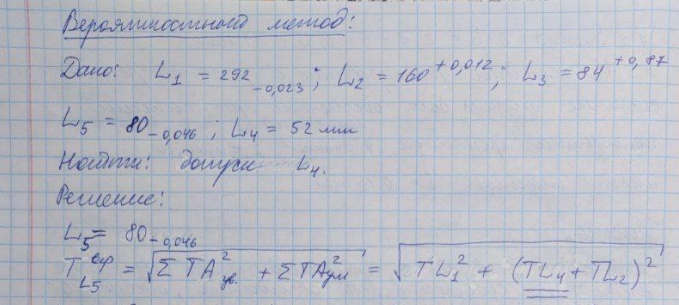 Вероятностного метод:
Дано: L₁ = 292₋₀,₀₂₃; L₂ = 160⁺⁰,⁰¹²; L₃ = 84⁺⁰,⁸⁷
L₅ = 80₋₀,₀₄₆; L₄ = 52 мм
Найти: допуск L₄.
Решение:
L₅ = 80₋₀,₀₄₆
T_L₅^ср = √(Σ TA²ув. + Σ TA²ум) = √(TL₁² + (TL₄ + TL₂)²)